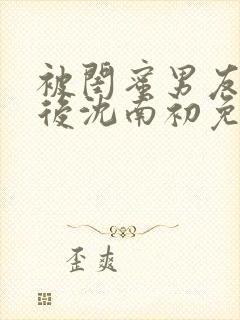 被闺蜜男友
后沈南初免
歪爽